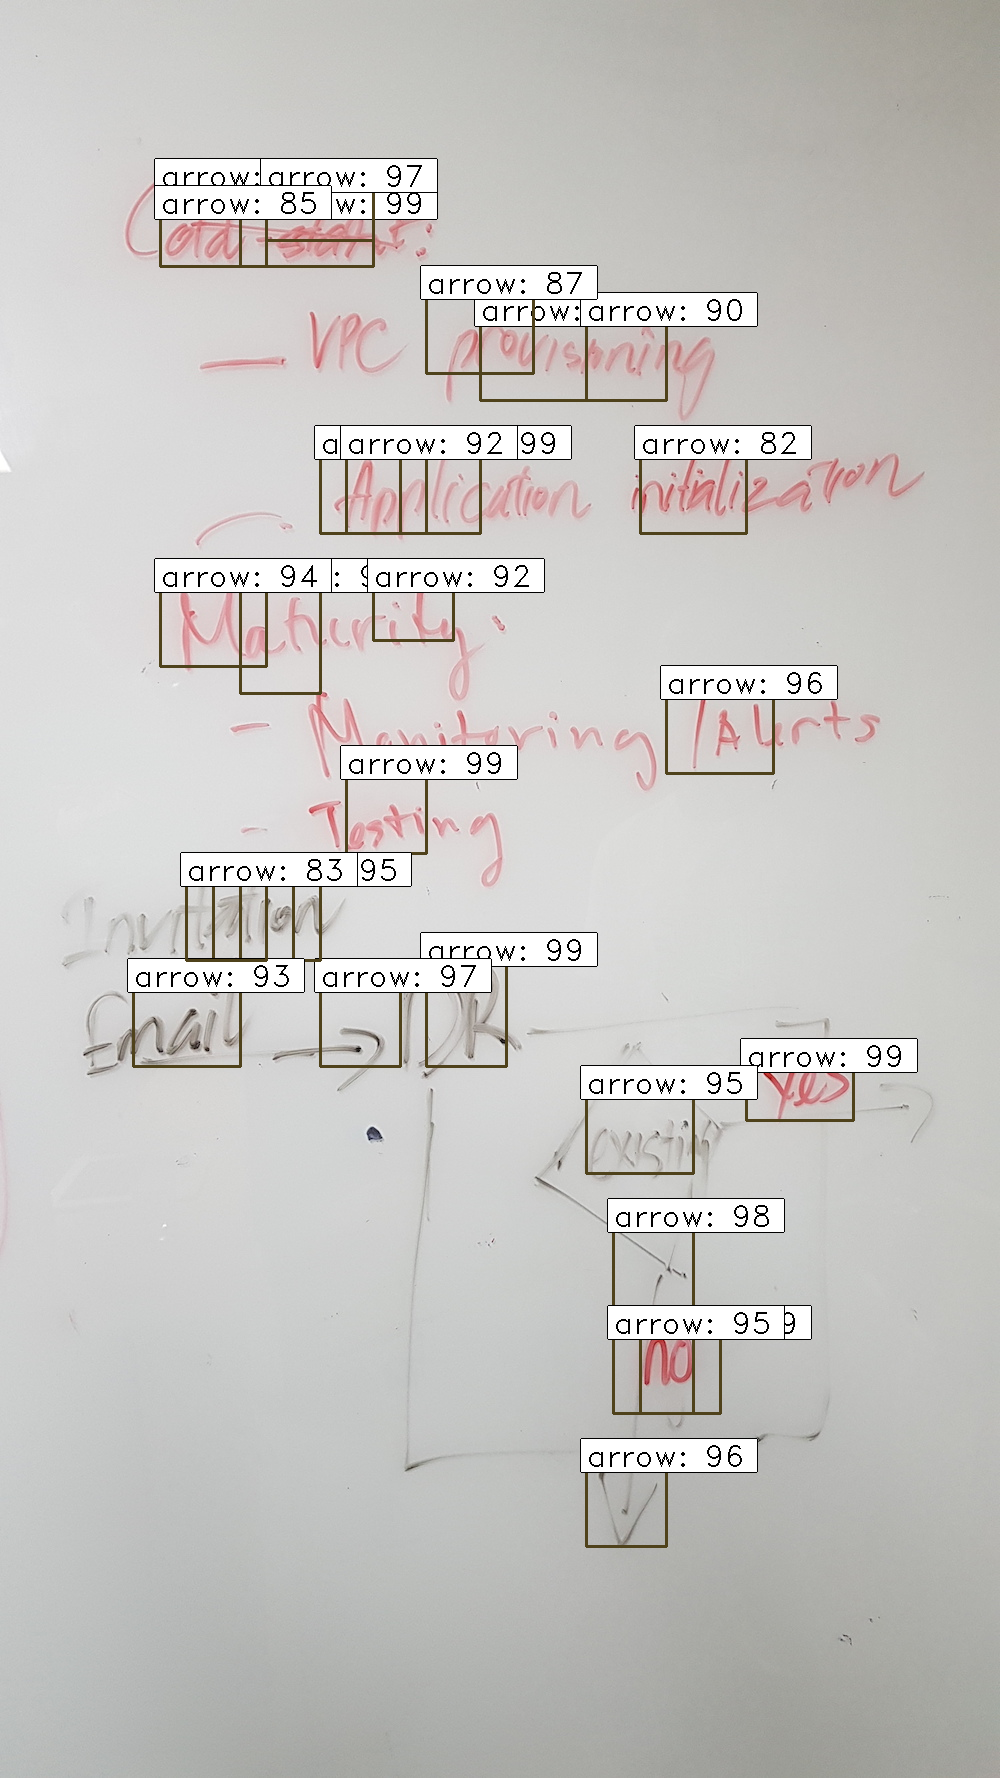 arrow: arrow: 97
arrow: 85 w: 99
Cold start:
arrow: 87
arrow: arrow: 90
— VPC provisioning
a arrow: 92 99 arrow: 82
— Application initialization
arrow: 94 : 9 arrow: 92
Maturity:
arrow: 96
- Monitoring / Alerts
arrow: 99
- Testing
arrow: 83 95
Invitation
arrow: 99
arrow: 93 arrow: 97
Email → DR
arrow: 99
arrow: 95 yes
existing
arrow: 98
arrow: 95 9
no
arrow: 96